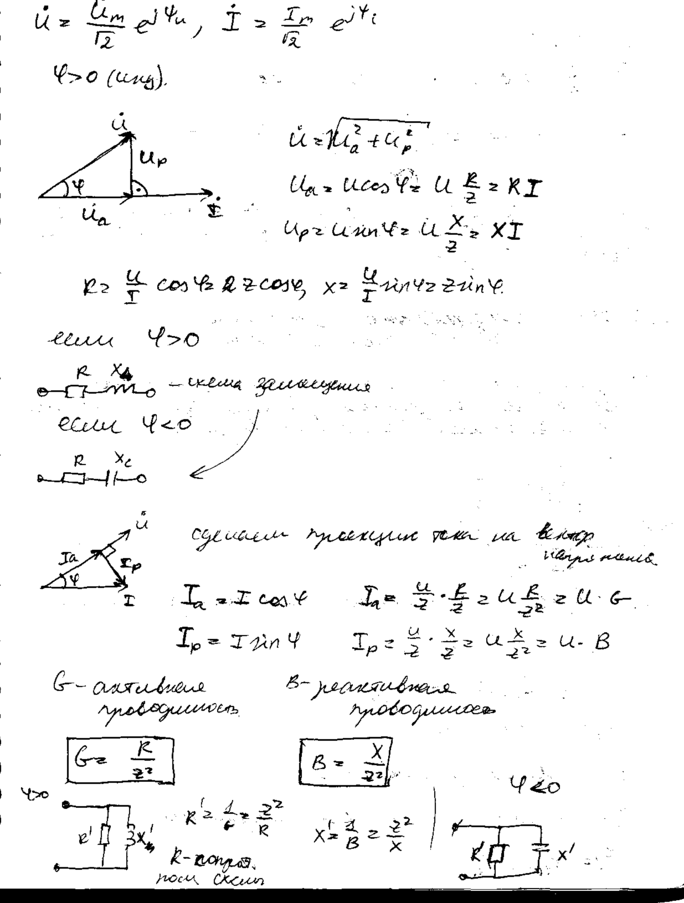 U̇ = U̇m/√2 e^jψu, İ = Im/√2 e^jψi
φ>0 (инд).
U̇
Uр
φ
U̇а
İ
U̇ = √Uа² + Uр²
Uа = U cos φ = U R/Z = RI
Uр = U sin φ = U X/Z = XI
R = U/I cos φ = Z cos φ, X = U/I sin φ = Z sin φ.
если φ>0
R X
– схема замещения
если φ<0
R Xc
U̇
Iа
Iр
φ
I
сделаем проекции тока на вектор
напряжения
Iа = I cos φ Iа = U/Z · R/Z = U R/Z² = U · G
Iр = I sin φ Iр = U/Z · X/Z = U X/Z² = U · B
G – активная B – реактивная
проводимость проводимость
G = R/Z² B = X/Z²
φ>0
R' X'
R' = 1/G = Z²/R
X' = 1/B = Z²/X
R – сопрот.
посл схемы
φ<0
R' X'